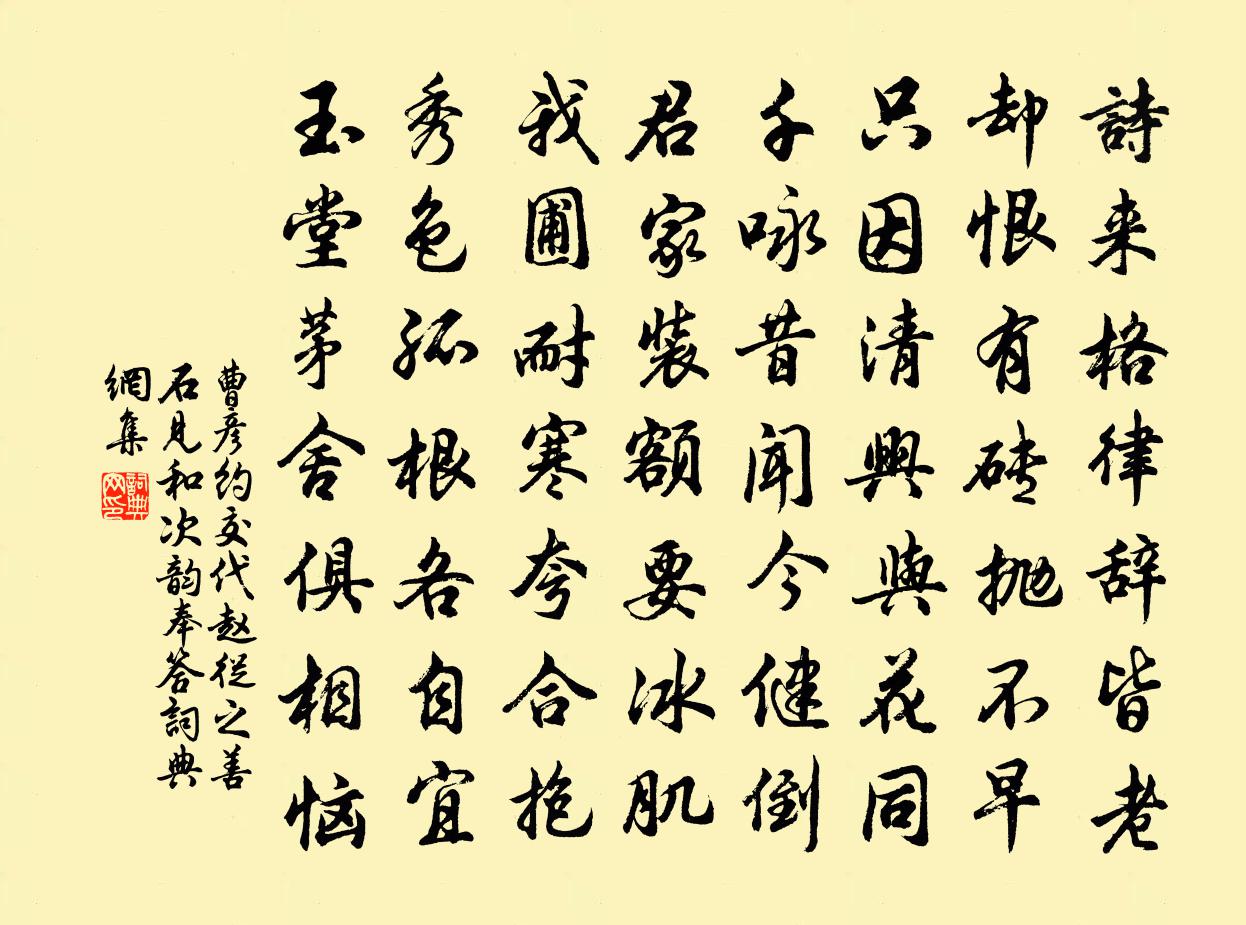 詩来格律辞皆老
却恨有砖抛不早
只因清興與花同
千咏昔聞今健倒
君家装额要冰肌
我圃耐寒夸合抱
秀色孤根各自宜
玉堂茅舍俱相恼
曹彦约交代赵從之善
石见和次韵奉答詞典
網集
詞典
网印